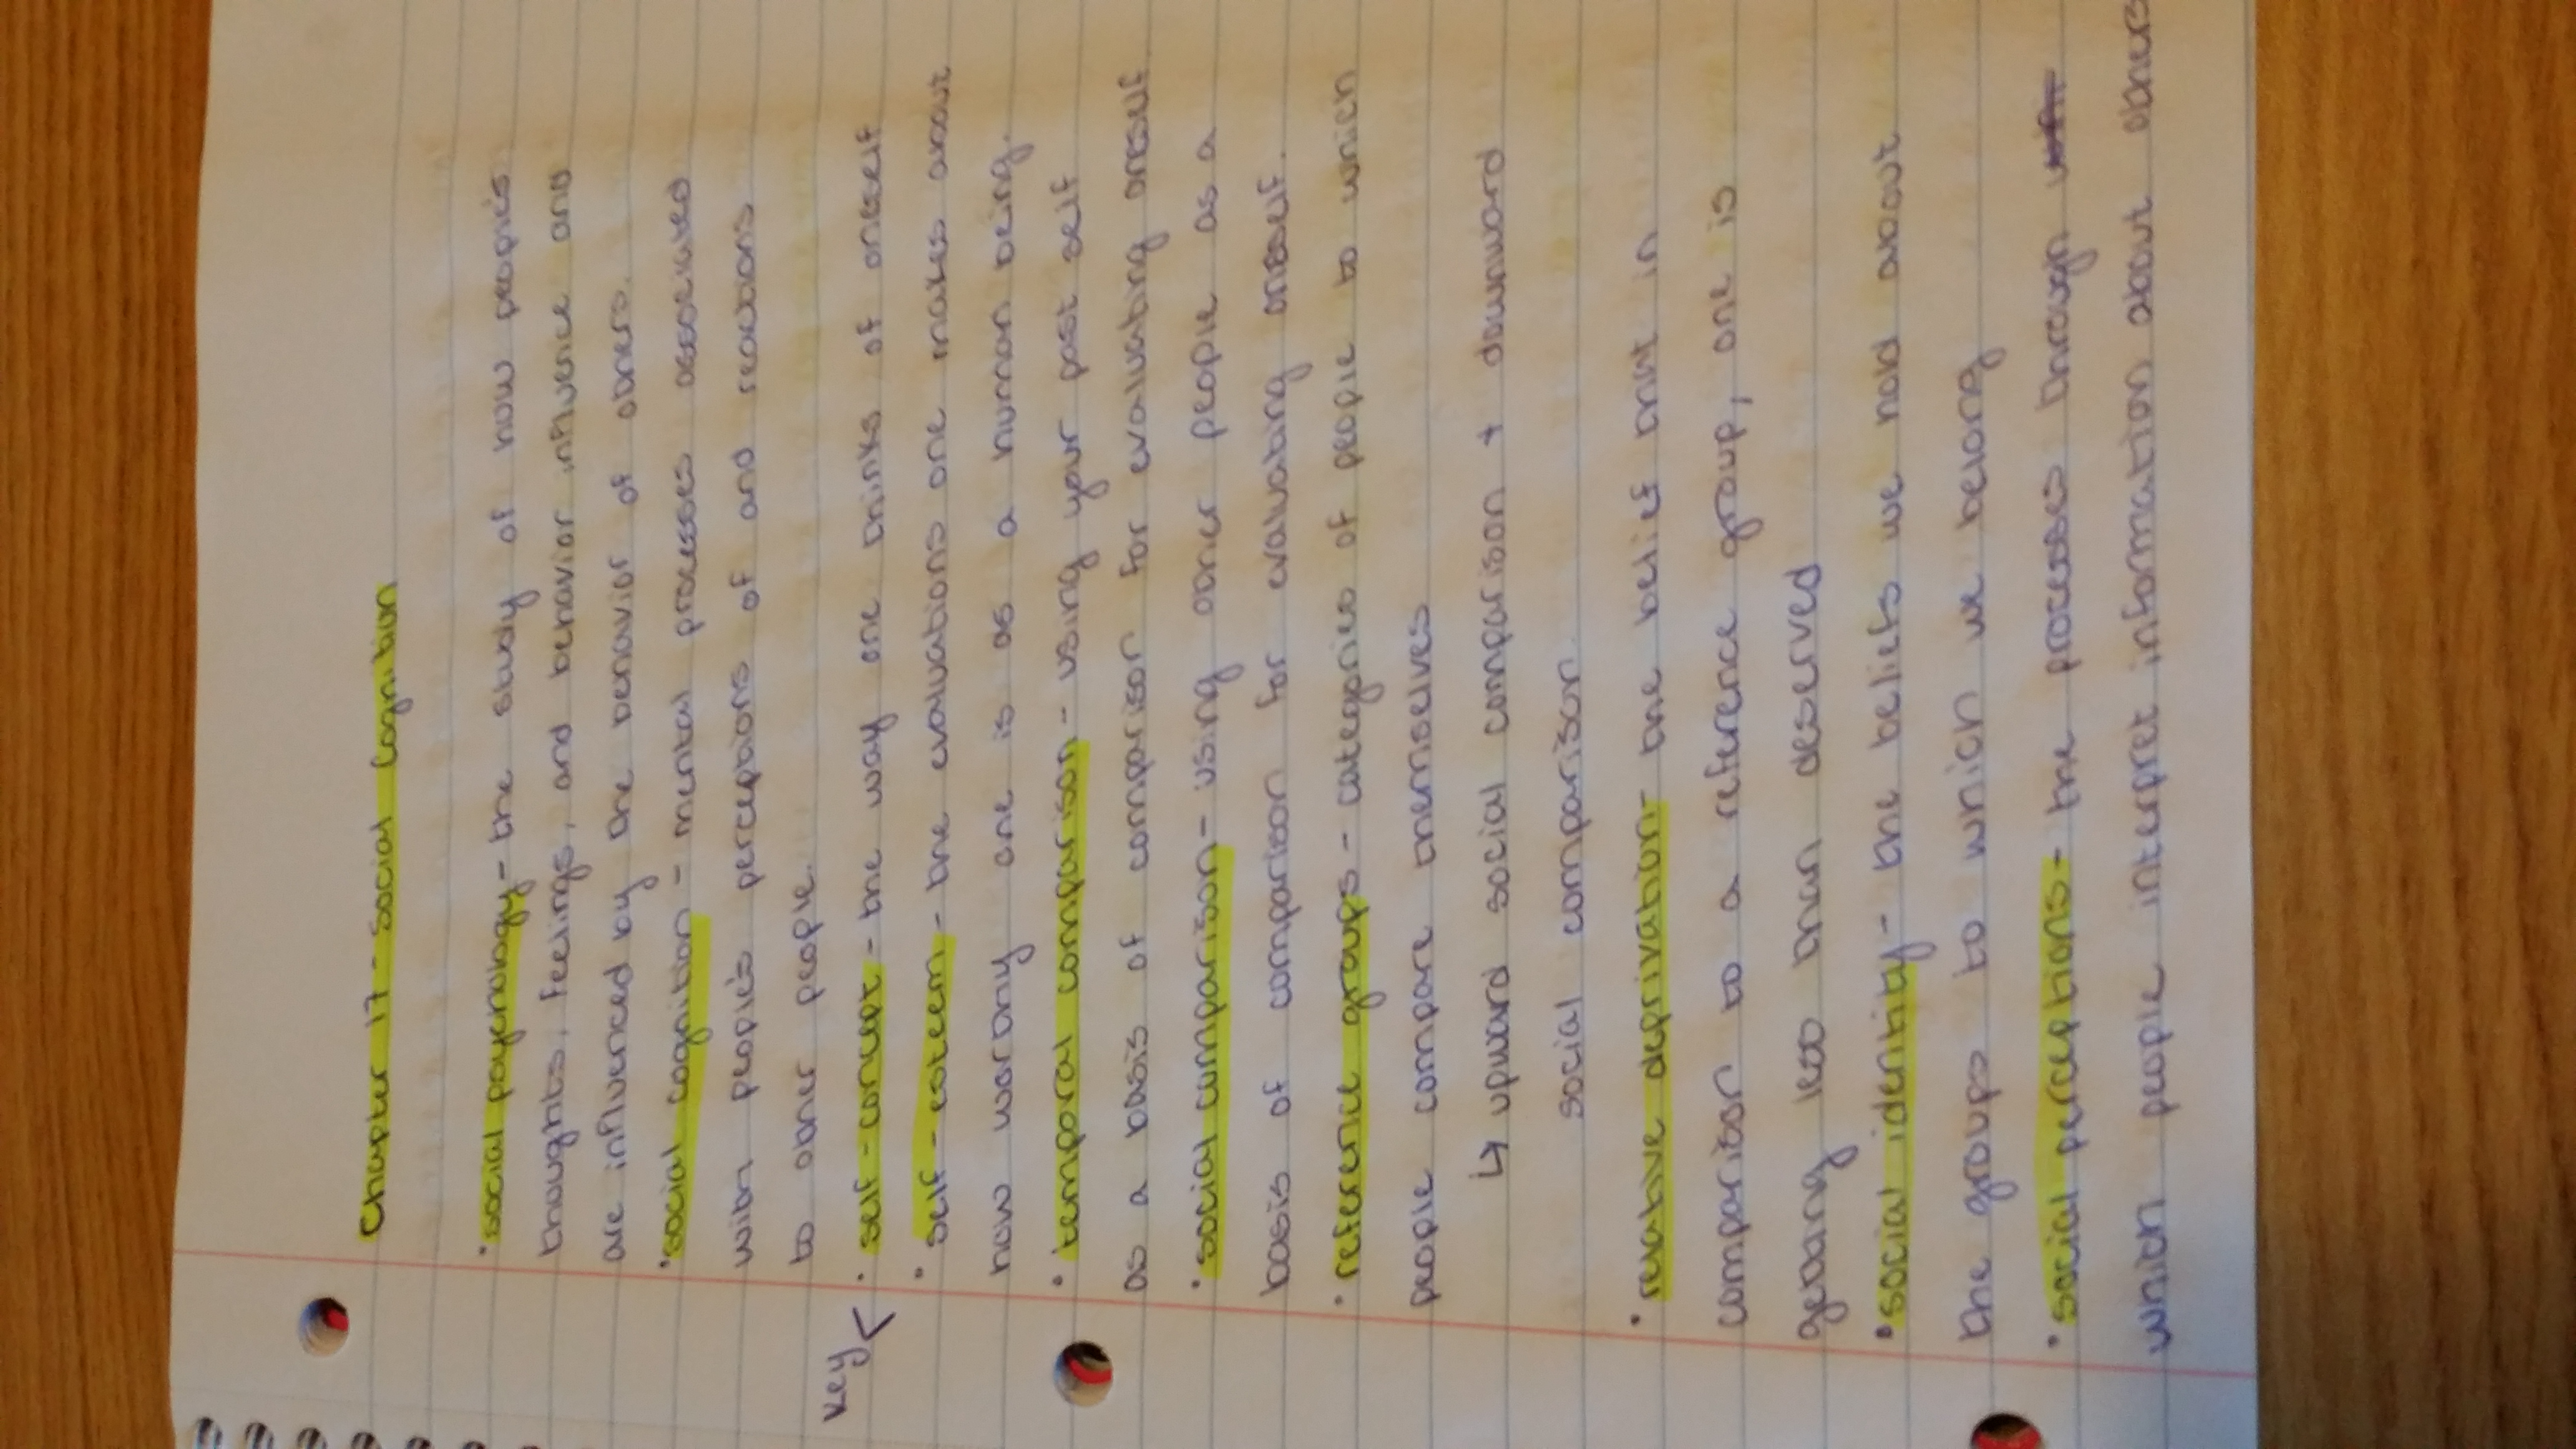 Chapter 17 - Social Cognition
• social psychology - the study of how people's
thoughts, feelings, and behavior influence and
are influenced by the behavior of others.
• social cognition - mental processes associated
with people's perceptions of and reactions
to other people.
Key < • self-concept - the way one thinks of oneself
• self-esteem - the evaluations one makes about
how worthy one is as a human being.
• temporal comparison - using your past self
as a basis of comparison for evaluating oneself
• social comparison - using other people as a
basis of comparison for evaluating oneself.
• reference groups - categories of people to which
people compare themselves
↳ upward social comparison + downward
social comparison
• relative deprivation - the belief that in
comparison to a reference group, one is
getting less than deserved
• social identity - the beliefs we hold about
the groups to which we belong
• social perceptions - the processes through
which people interpret information about others